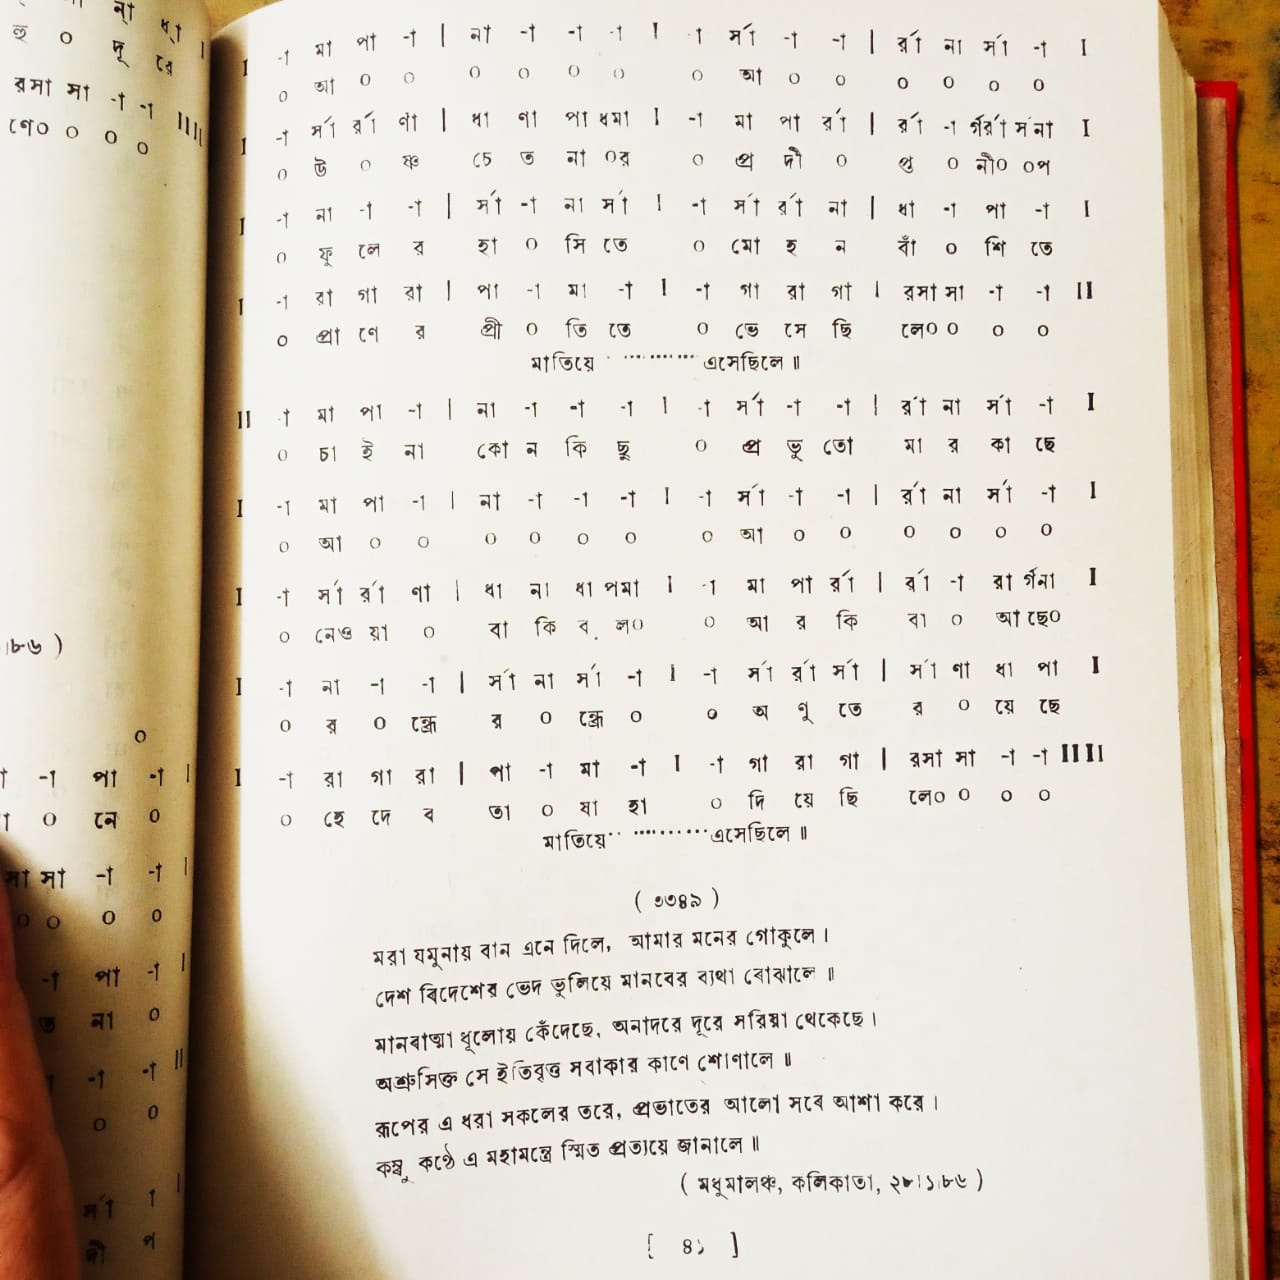 I -া মা পা -া | না -া -া -া I -া র্সা -া -া | র্রা না র্সা -া I
০ আ ০ ০ ০ ০ ০ ০ ০ আ ০ ০ ০ ০ ০ ০
I -া র্সা র্রা ণা | ধা ণা পা ধমা I -া মা পা র্রা | র্রা -া র্গর্রা র্সনা I
০ উ ০ ষ্ণ চে ত না ০র ০ প্র দী ০ প্ত ০ নী০ ০প
I -া না -া -া | র্সা -া না র্সা I -া র্সা র্রা না | ধা -া পা -া I
০ ফু লে র হা ০ সি তে ০ মো হ ন বাঁ ০ শি তে
I -া রা গা রা | পা -া মা -া I -া গা রা গা | রসা সা -া -া II
০ প্রা ণে র প্রী ০ তি তে ০ ভে সে ছি লে০ ০ ০ ০
মাতিয়ে ............ এসেছিলে ॥
II -া মা পা -া | না -া -া -া I -া র্সা -া -া | র্রা না র্সা -া I
০ চা ই না কো ন কি ছু ০ প্র ভু তো মা র কা ছে
I -া মা পা -া | না -া -া -া I -া র্সা -া -া | র্রা না র্সা -া I
০ আ ০ ০ ০ ০ ০ ০ ০ আ ০ ০ ০ ০ ০ ০
I -া র্সা র্রা ণা | ধা না ধা পমা I -া মা পা র্রা | র্রা -া রা র্গনা I
০ নেও য়া ০ বা কি ব ল০ ০ আ র কি বা ০ আ ছে০
I -া না -া -া | র্সা না র্সা -া I -া র্সা র্রা র্সা | র্সা ণা ধা পা I
০ র ০ ন্ধ্রে র ০ ন্ধ্রে ০ ০ অ ণু তে র ০ য়ে ছে
I -া রা গা রা | পা -া মা -া I -া গা রা গা | রসা সা -া -া IIII
০ হে দে ব তা ০ যা হা ০ দি য়ে ছি লে০ ০ ০ ০
মাতিয়ে ............ এসেছিলে ॥
( ৩৩৪৯ )
মরা যমুনায় বান এনে দিলে, আমার মনের গোকুলে ।
দেশ বিদেশের ভেদ ভুলিয়ে মানবের ব্যথা বোঝালে ॥
মানবাত্মা ধূলোয় কেঁদেছে, অনাদরে দূরে সরিয়া থেকেছে ।
অশ্রুসিক্ত সে ইতিবৃত্ত সবাকার কাণে শোণালে ॥
রূপের এ ধরা সকলের তরে, প্রভাতের আলো সবে আশা করে ।
কম্বু কণ্ঠে এ মহামন্ত্রে স্মিত প্রত্যয়ে জানালে ॥
( মধুমালঞ্চ, কলিকাতা, ২৮।১।৮৬ )
[ ৪১ ]